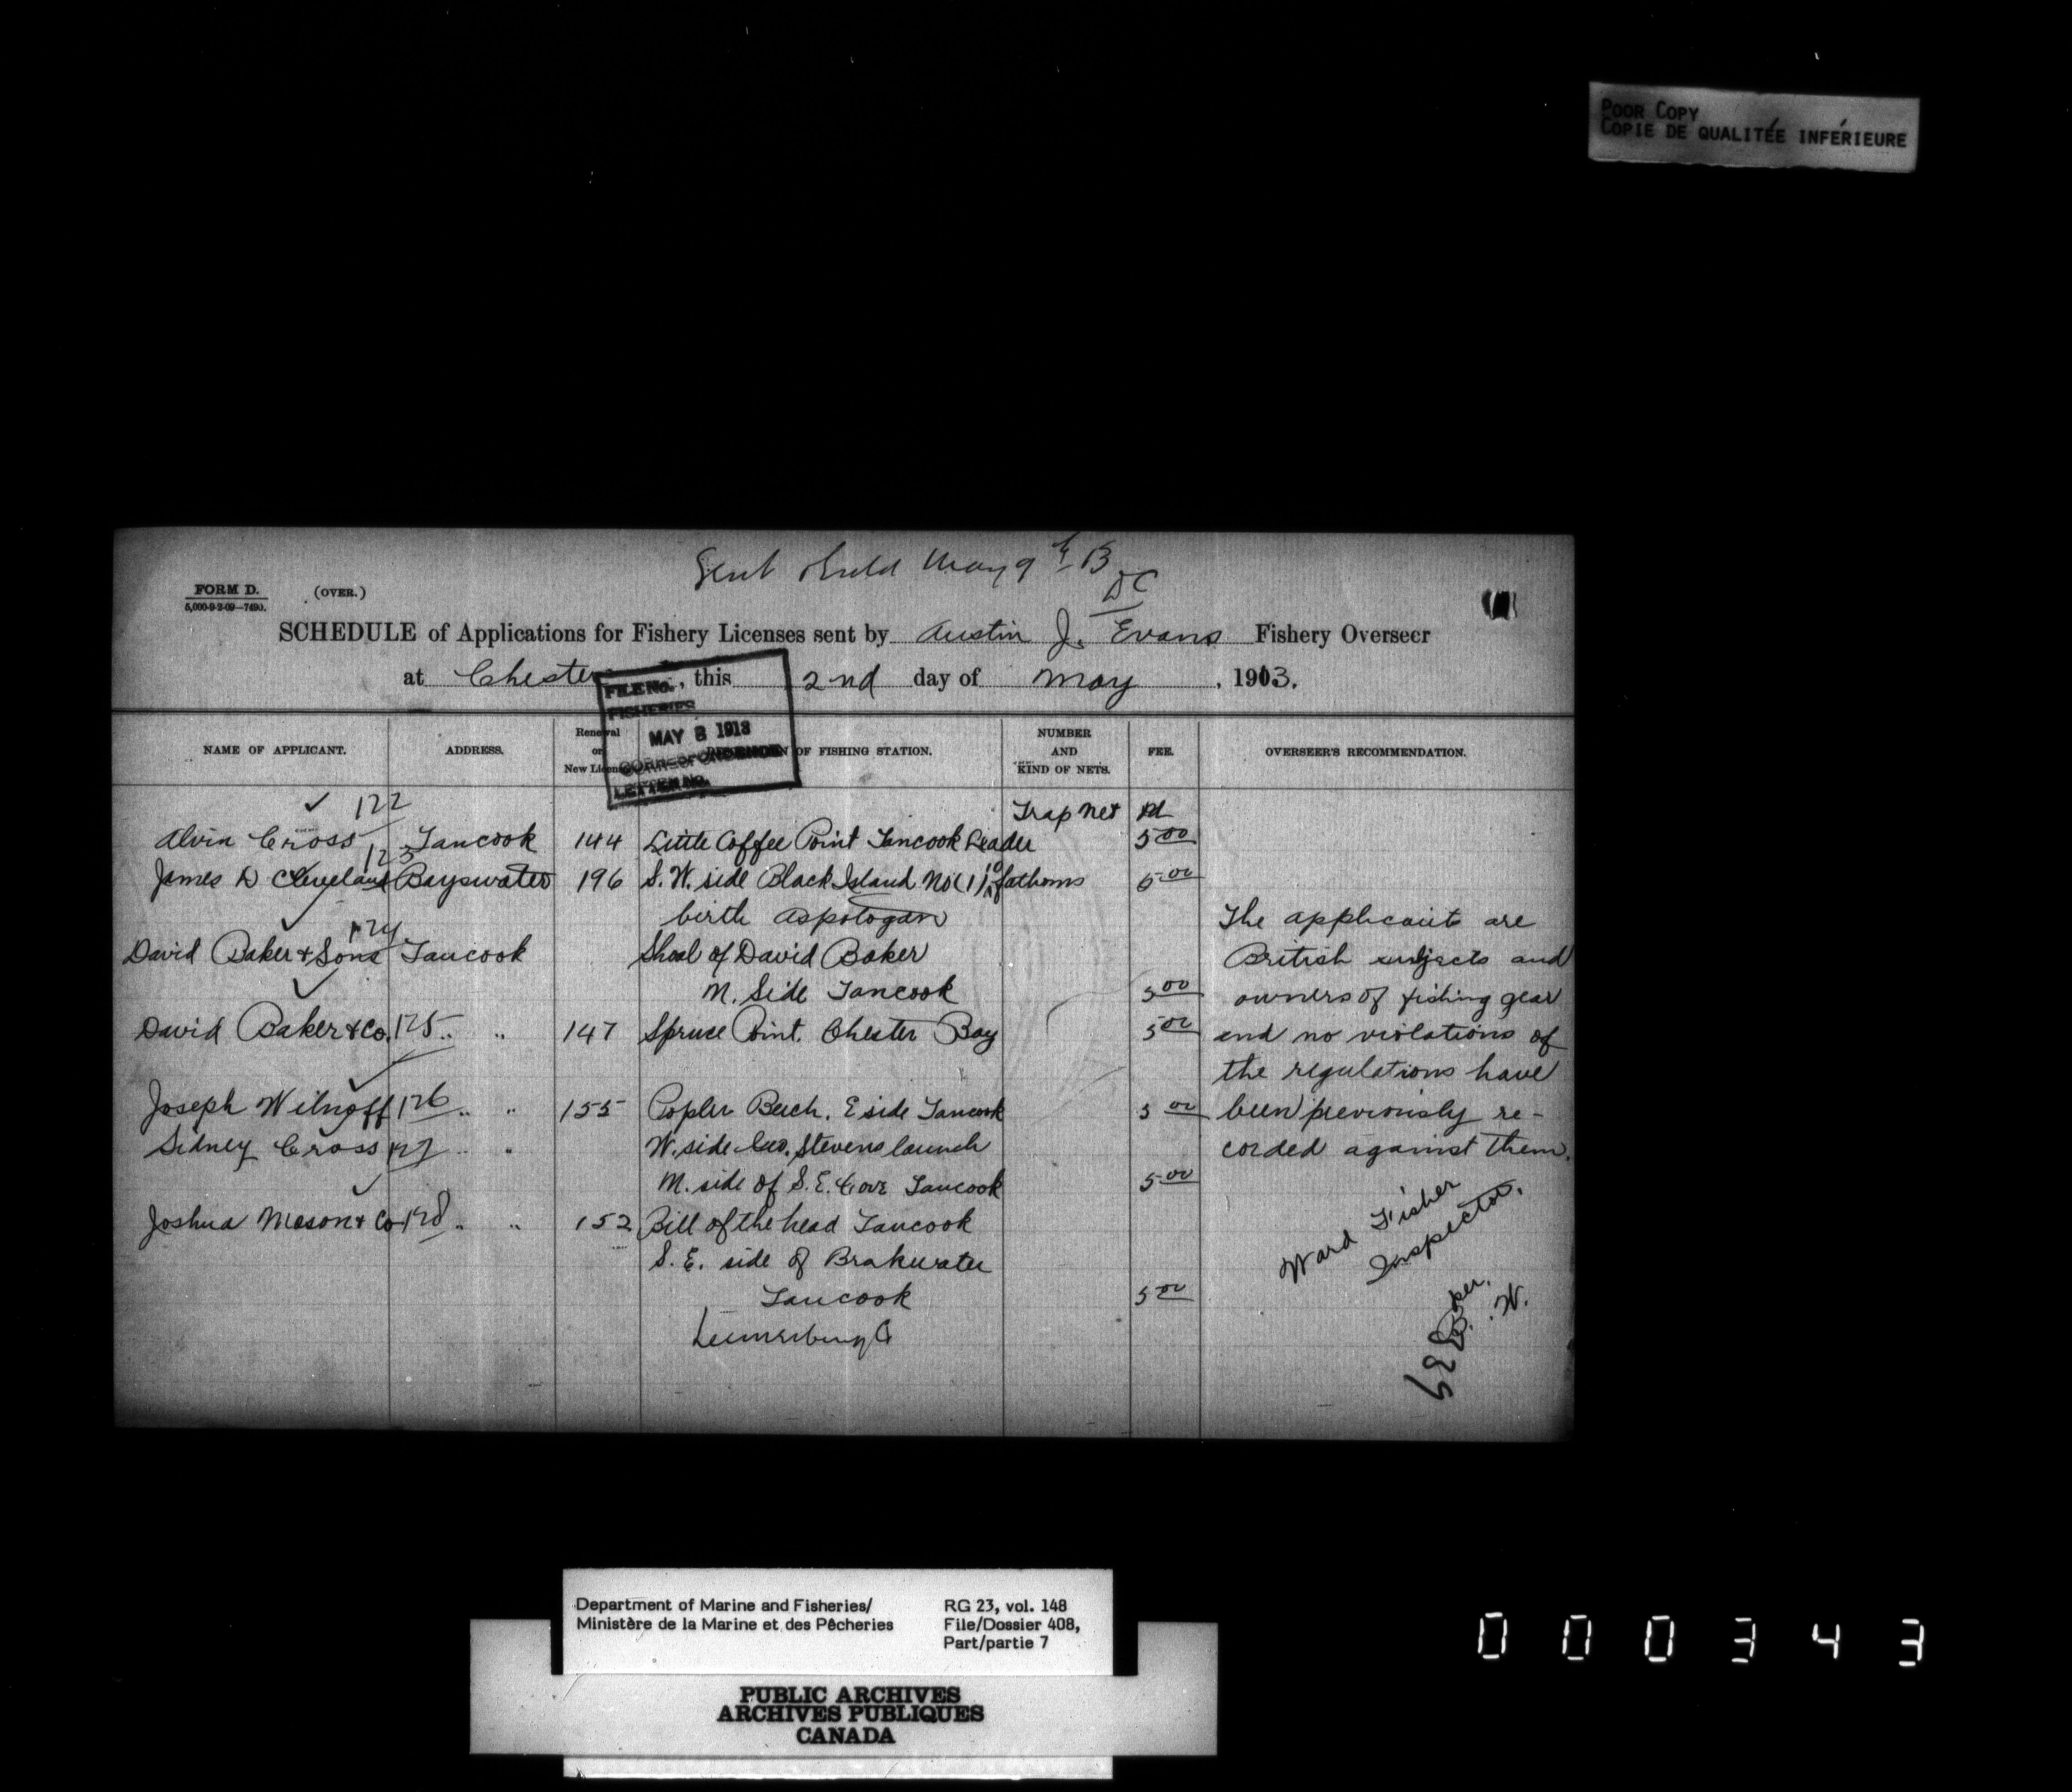 POOR COPY
COPIE DE QUALITÉE INFÉRIEURE
Sent May 9th 13
DC
FORM D.
5,000-9-2-09—7490.
(OVER.)
SCHEDULE of Applications for Fishery Licenses sent by Austin J. Evans Fishery Overseer
at Chester, this 2nd day of May, 1913.
FILE No.
FISHERIES
MAY 8 1913
CORRESPONDENCE
LETTER No.
NAME OF APPLICANT. ADDRESS. Renewal or New License OF FISHING STATION. NUMBER AND KIND OF NETS. FEE. OVERSEER'S RECOMMENDATION.
122 Trap net Pd
Alvin Cross Tancook 144 Little Coffee Point Tancook Leader 5 00
James D Cleveland 123 Bayswater 196 S. W. side Black Island No (1) 10 fathoms 5 00
birth Aspotogan
David Baker & Sons 124 Tancook Shoal of David Baker
N. Side Tancook 5 00
David Baker & Co. 125 " " 147 Spruce Point. Chester Bay 5 00
Joseph Wilnoff 126 " " 155 Popler Beech. E side Tancook 5 00
Sidney Cross 127 " " W. side Geo. Stevens launch
N. side of S. E. Cove Tancook 5 00
Joshua Mason & Co 128 " " 152 Bill of the head Tancook
S. E. side of Brakwater
Tancook 5 00
Lunenburg Co
The applicants are
British subjects and
owners of fishing gear
and no violations of
the regulations have
been previously re-
corded against them.
Ward Fisher
Inspector.
Department of Marine and Fisheries/
Ministère de la Marine et des Pêcheries
RG 23, vol. 148
File/Dossier 408,
Part/partie 7
PUBLIC ARCHIVES
ARCHIVES PUBLIQUES
CANADA
000343